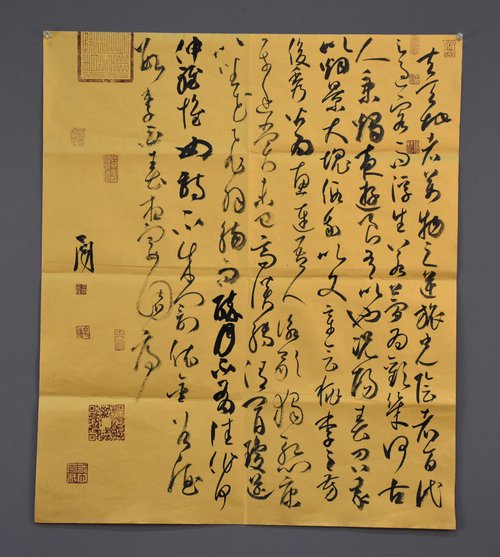 夫天地者萬物之逆旅光陰者百代
之過客而浮生若夢為歡幾何古
人秉燭夜遊良有以也況陽春召我
以煙景大塊假我以文章會桃李之芳
俊秀皆為惠連吾人詠歌獨慚康
樂幽賞未已高談轉清開瓊筵
以坐花飛羽觴而醉月不有佳作何
伸雅懷如詩不成罰依金谷酒
數李白春夜宴園序